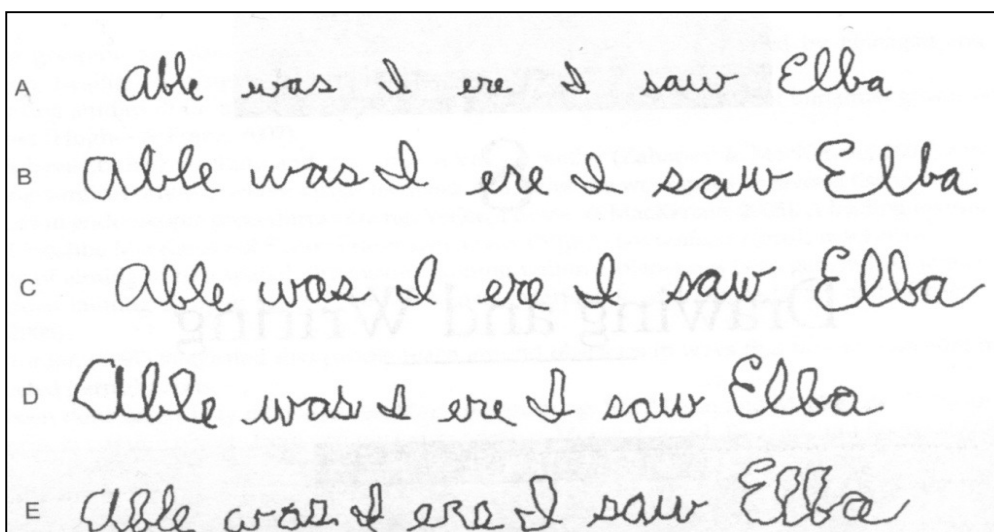 A Able was I ere I saw Elba
B Able was I ere I saw Elba
C Able was I ere I saw Elba
Drawing and Writing
D Able was I ere I saw Elba
E Able was I ere I saw Elba